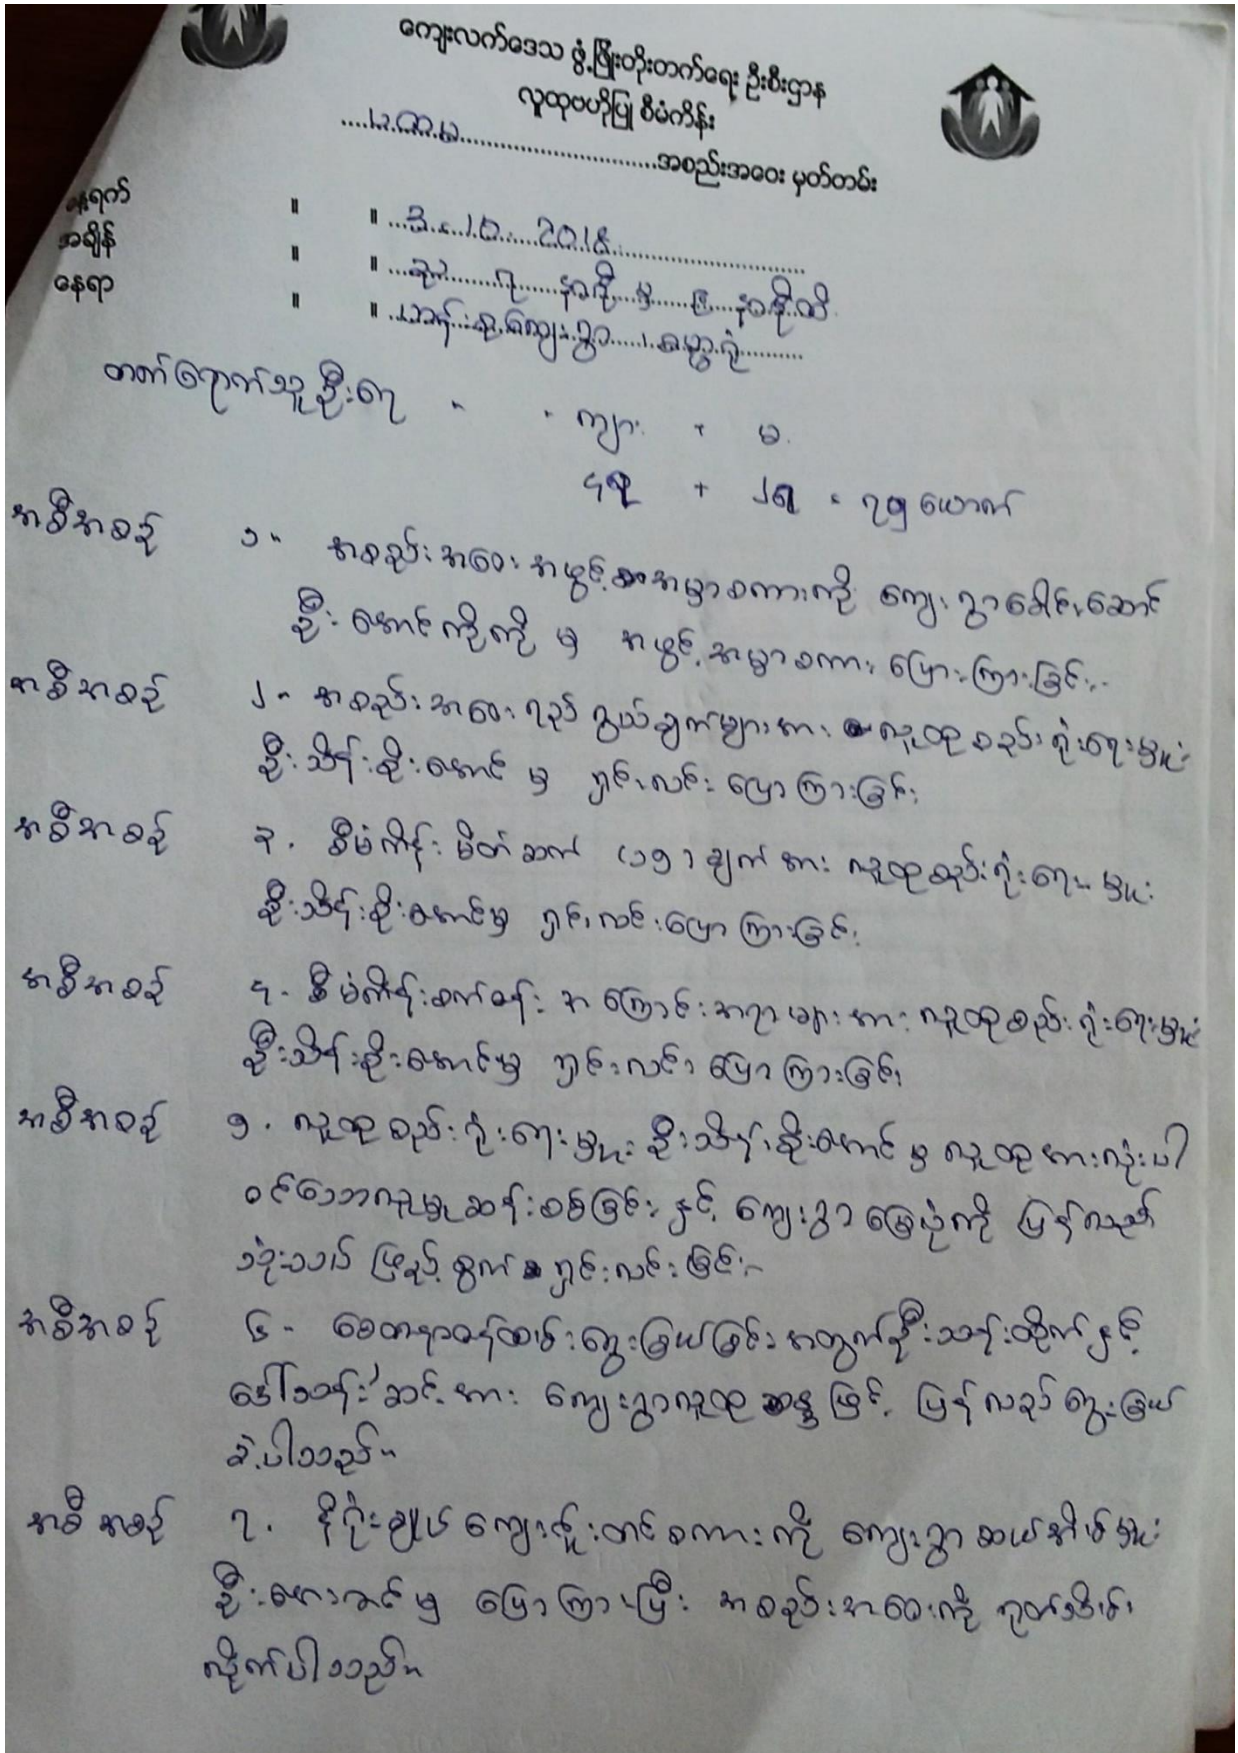 ကျေးလက်ဒေသ ဖွံ့ဖြိုးတိုးတက်ရေး ဦးစီးဌာန
လူထုဗဟိုပြု စီမံကိန်း
ပထမ အစည်းအဝေး မှတ်တမ်း
နေ့ရက် ။ ။ 3.10.2018
အချိန် ။ ။ ည ၇ နာရီ မှ ၉ နာရီထိ
နေရာ ။ ။ ကျေးရွာ
တက်ရောက်သူဦးရေ - - ကျား + မ
၄၇ + ၂၈ = ၇၅ ယောက်
အစီအစဉ် ၁- အစည်းအဝေး အဖွင့် အမှာစကားကို ကျေးရွာခေါင်းဆောင်
ဦးအောင်ကိုကို မှ အဖွင့် အမှာစကား ပြောကြားခြင်း
အစီအစဉ် ၂- အစည်းအဝေး ရည်ရွယ်ချက်များအား လူထုစည်းရုံးရေးမှူး
ဦးသိန်းစိုးအောင် မှ ရှင်းလင်း ပြောကြားခြင်း
အစီအစဉ် ၃. စီမံကိန်း မိတ်ဆက် (၁၅) ချက်အား လူထုစည်းရုံးရေးမှူး
ဦးသိန်းစိုးအောင်မှ ရှင်းလင်းပြောကြားခြင်း
အစီအစဉ် ၄- စီမံကိန်းစက်ဝန်း အကြောင်းအရာများအား လူထုစည်းရုံးရေးမှူး
ဦးသိန်းစိုးအောင်မှ ရှင်းလင်း ပြောကြားခြင်း
အစီအစဉ် ၅. လူထုစည်းရုံးရေးမှူး ဦးသိန်းစိုးအောင် မှ လူထုအားလုံးပါ
ဝင်သောလူမှုဆန်းစစ်ခြင်း နှင့် ကျေးရွာမြေပုံကို ပြန်လည်
သုံးသပ် ဖြည့်စွက် ရှင်းလင်းခြင်း
အစီအစဉ် ၆- စေတနာ့ဝန်ထမ်းရွေးချယ်ခြင်း အတွက် ဦးသန်းထိုက်နှင့်
ဒေါ်သန်းဆင့်အား ကျေးရွာလူထု ဆန္ဒဖြင့် ပြန်လည်ရွေးချယ်
ခဲ့ပါသည်။
အစီအစဉ် ၇. နိဂုံးချုပ် ကျေးဇူးတင်စကားကို ကျေးရွာဆယ်အိမ်မှူး
ဦး မှ ပြောကြားပြီး အစည်းအဝေးကို ရုတ်သိမ်း
လိုက်ပါသည်။